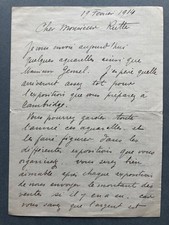 11 Février 1914
Cher Monsieur Rutter
Je vous envoie aujourd'hui
quelques aquarelles ainsi que
J'espère qu'elles
arriveront assez tôt pour
l'exposition que vous préparez à
Cambridge.
Vous pourrez garder toute
l'année ces aquarelles et
les faire figurer dans les
différentes exposition que vous
organisez vous serez bien
aimable après chaque exposition
de nous envoyer le montant des
ventes s'il y en a eu. car
vous savez que l'argent est